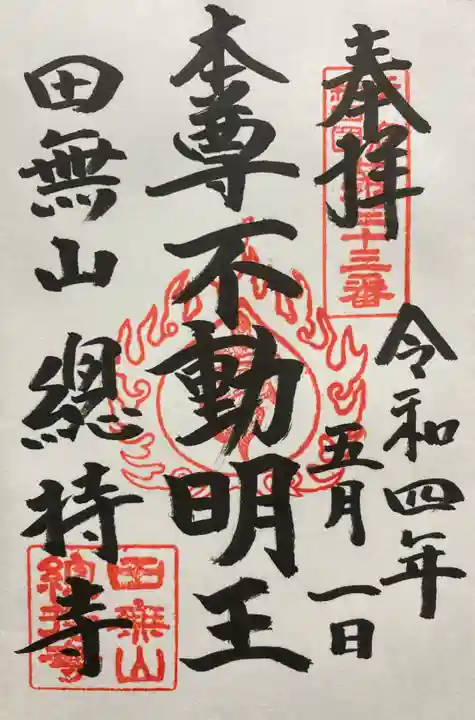 奉拝
令和四年
五月一日
本尊不動明王
田無山 總持寺
田無山
總持寺